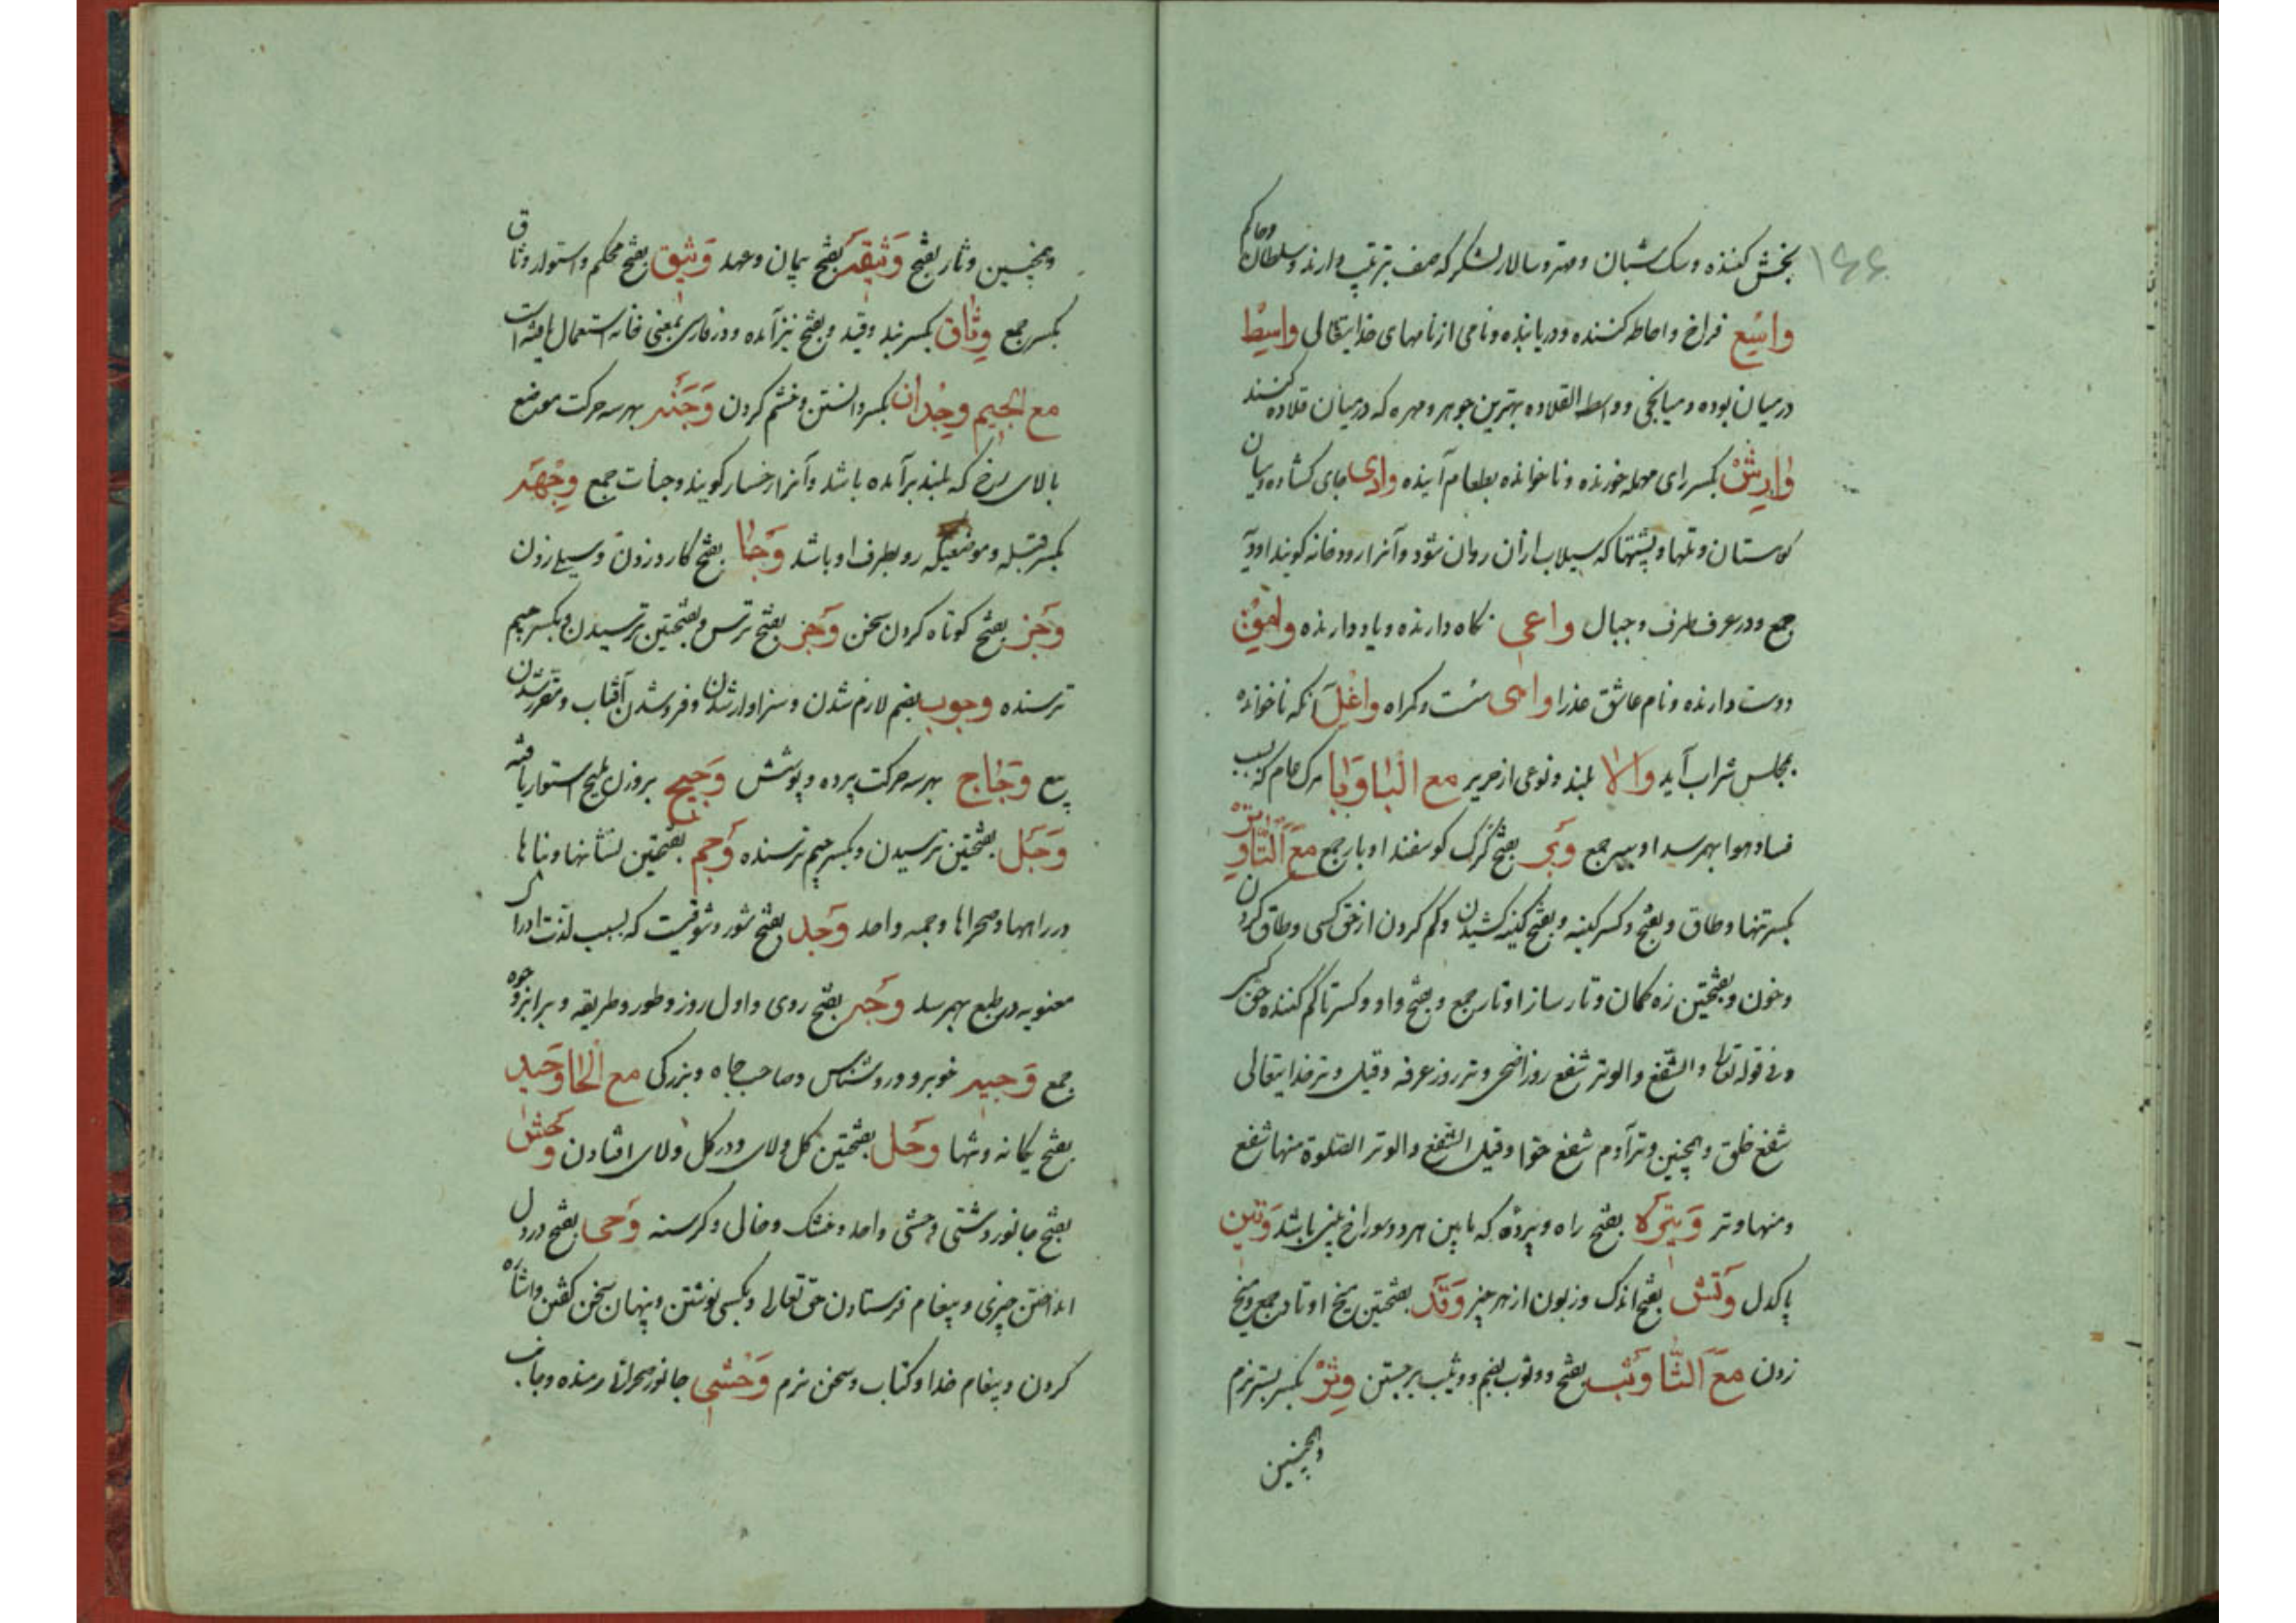 ۱۶۶
بخش کننده و سک شبان و مهتر و سالار لشکر که صف بترتیب دارند و سلطان و حاکم
واسِع فراخ و احاطه کننده و دریابنده و نامی از نامهای خدایتعالی واسِطْ
در میان بوده و میانجی و واسطه القلاده بهترین جوهر و مهره که در میان قلاده کنند
وارِشْ بکسر رای مهمله خورنده و ناخوانده بطعام آینده وادی جای کشاده میان
کوهستان و تلها و پشتها که سیلاب ازان روان شود و آنرا رودخانه کویند اودیة
جمع و در عرف طرف و جبال واعی نکاه دارنده و یاد دارنده وامِقْ
دوست دارنده و نام عاشق عذرا واهی سست و کمراه واغِل آنکه ناخوانده
بمجلس شراب آید والا بلند و نوعی از حریر مع الْبا وَبا مرک عام که بسبب
فساد هوا بهم رسد اوبیه جمع وَبَر بفتح کرک کوسفند اوبار جمع مَعَ اَلتّا وِتْرْ
بکسر تنها و طاق و بفتح و کسر کینه و بفتح کینه کشیدن و کم کردن از حق کسی و طاق کردن
و خون و بفتحتین زه کمان و تار ساز اوتار جمع و بفتح واو و کسر تا کم کننده حق کسی
و فی قوله تعا و الشّفع والوتر شفع روز اضحی و وتر روز عرفه و قیل وتر خدایتعالی
شفع خلق و همچنین وتر آدم شفع حوّا و قیل الشفع والوتر الصّلوة منها شفع
و منها وتر وَتیرَه بفتح راه و پرده که مابین هر دو سوراخ بینی باشد وَتین
پاک دل وَتَش بفتح اندک و زبون از هر چیز وَتَد بفتحتین میخ اوتاد جمع و میخ
زدن مَعَ اَلثّا وَثب بفتح و وثوب بضم و وثیب برجستن وِثْرْ بکسر بستر نرم
و همچنین
و همچنین وثار بفتح وَثیقَه بفتح پیمان و عهد وَثیق بفتح محکم و استوار وثاق
بکسر جمع وِثاق بکسر بند و قید و بفتح نیز آمده و در فارسی بمعنی خانه استعمال یافته است
مع الجیم وِجْدان بکسر دانستن و خشم کردن وَجَنَه بهر سه حرکت موضع
بالای رخ که بلند برآمده باشد و آنرا رخسار کویند وجنات جمع وِجْهَه
بکسر قبله و موضعیکه رو بطرف او باشد وَجا بفتح کارد زدن و سیلی زدن
وَجز بفتح کوتاه کردن سخن وَجر بفتح ترس و بفتحتین ترسیدن و بکسر جیم
ترسنده وجوب بضم لازم شدن و سزاوار شدن و فرو شدن آفتاب و مقرر شدن
بیع وَجاج بهر سه حرکت پرده و پوشش وَجیح بروزن ملیح استوار یافته
وَجَل بفتحتین ترسیدن و بکسر جیم ترسنده وَجَم بفتحتین نشانها و بناها
در راهها و صحراها وجمه واحد وَجد بفتح شور و شوقیست که بسبب لذّت ادراک
معنویه در طبع بهم رسد وَجه بفتح روی و اول روز و طور و طریقه و برابر وجوه
جمع وَجیه خوبرو و روشناس و صاحب جاه و بزرکی مع الحا وَحید
بفتح یکانه و تنها وَحَل بفتحتین کل ولای و در کل ولای افتادن وَحش
بفتح جانور دشتی وحشی واحد و خشک و خالی و کرسنه وَحی بفتح در دل
انداختن چیزی و پیغام فرستادن حق تعالی و بکسی نوشتن و پنهان سخن کفتن و اشاره
کردن و پیغام خدا و کتاب و سخن نرم وَحْشی جانور صحرائی رمنده و جانب